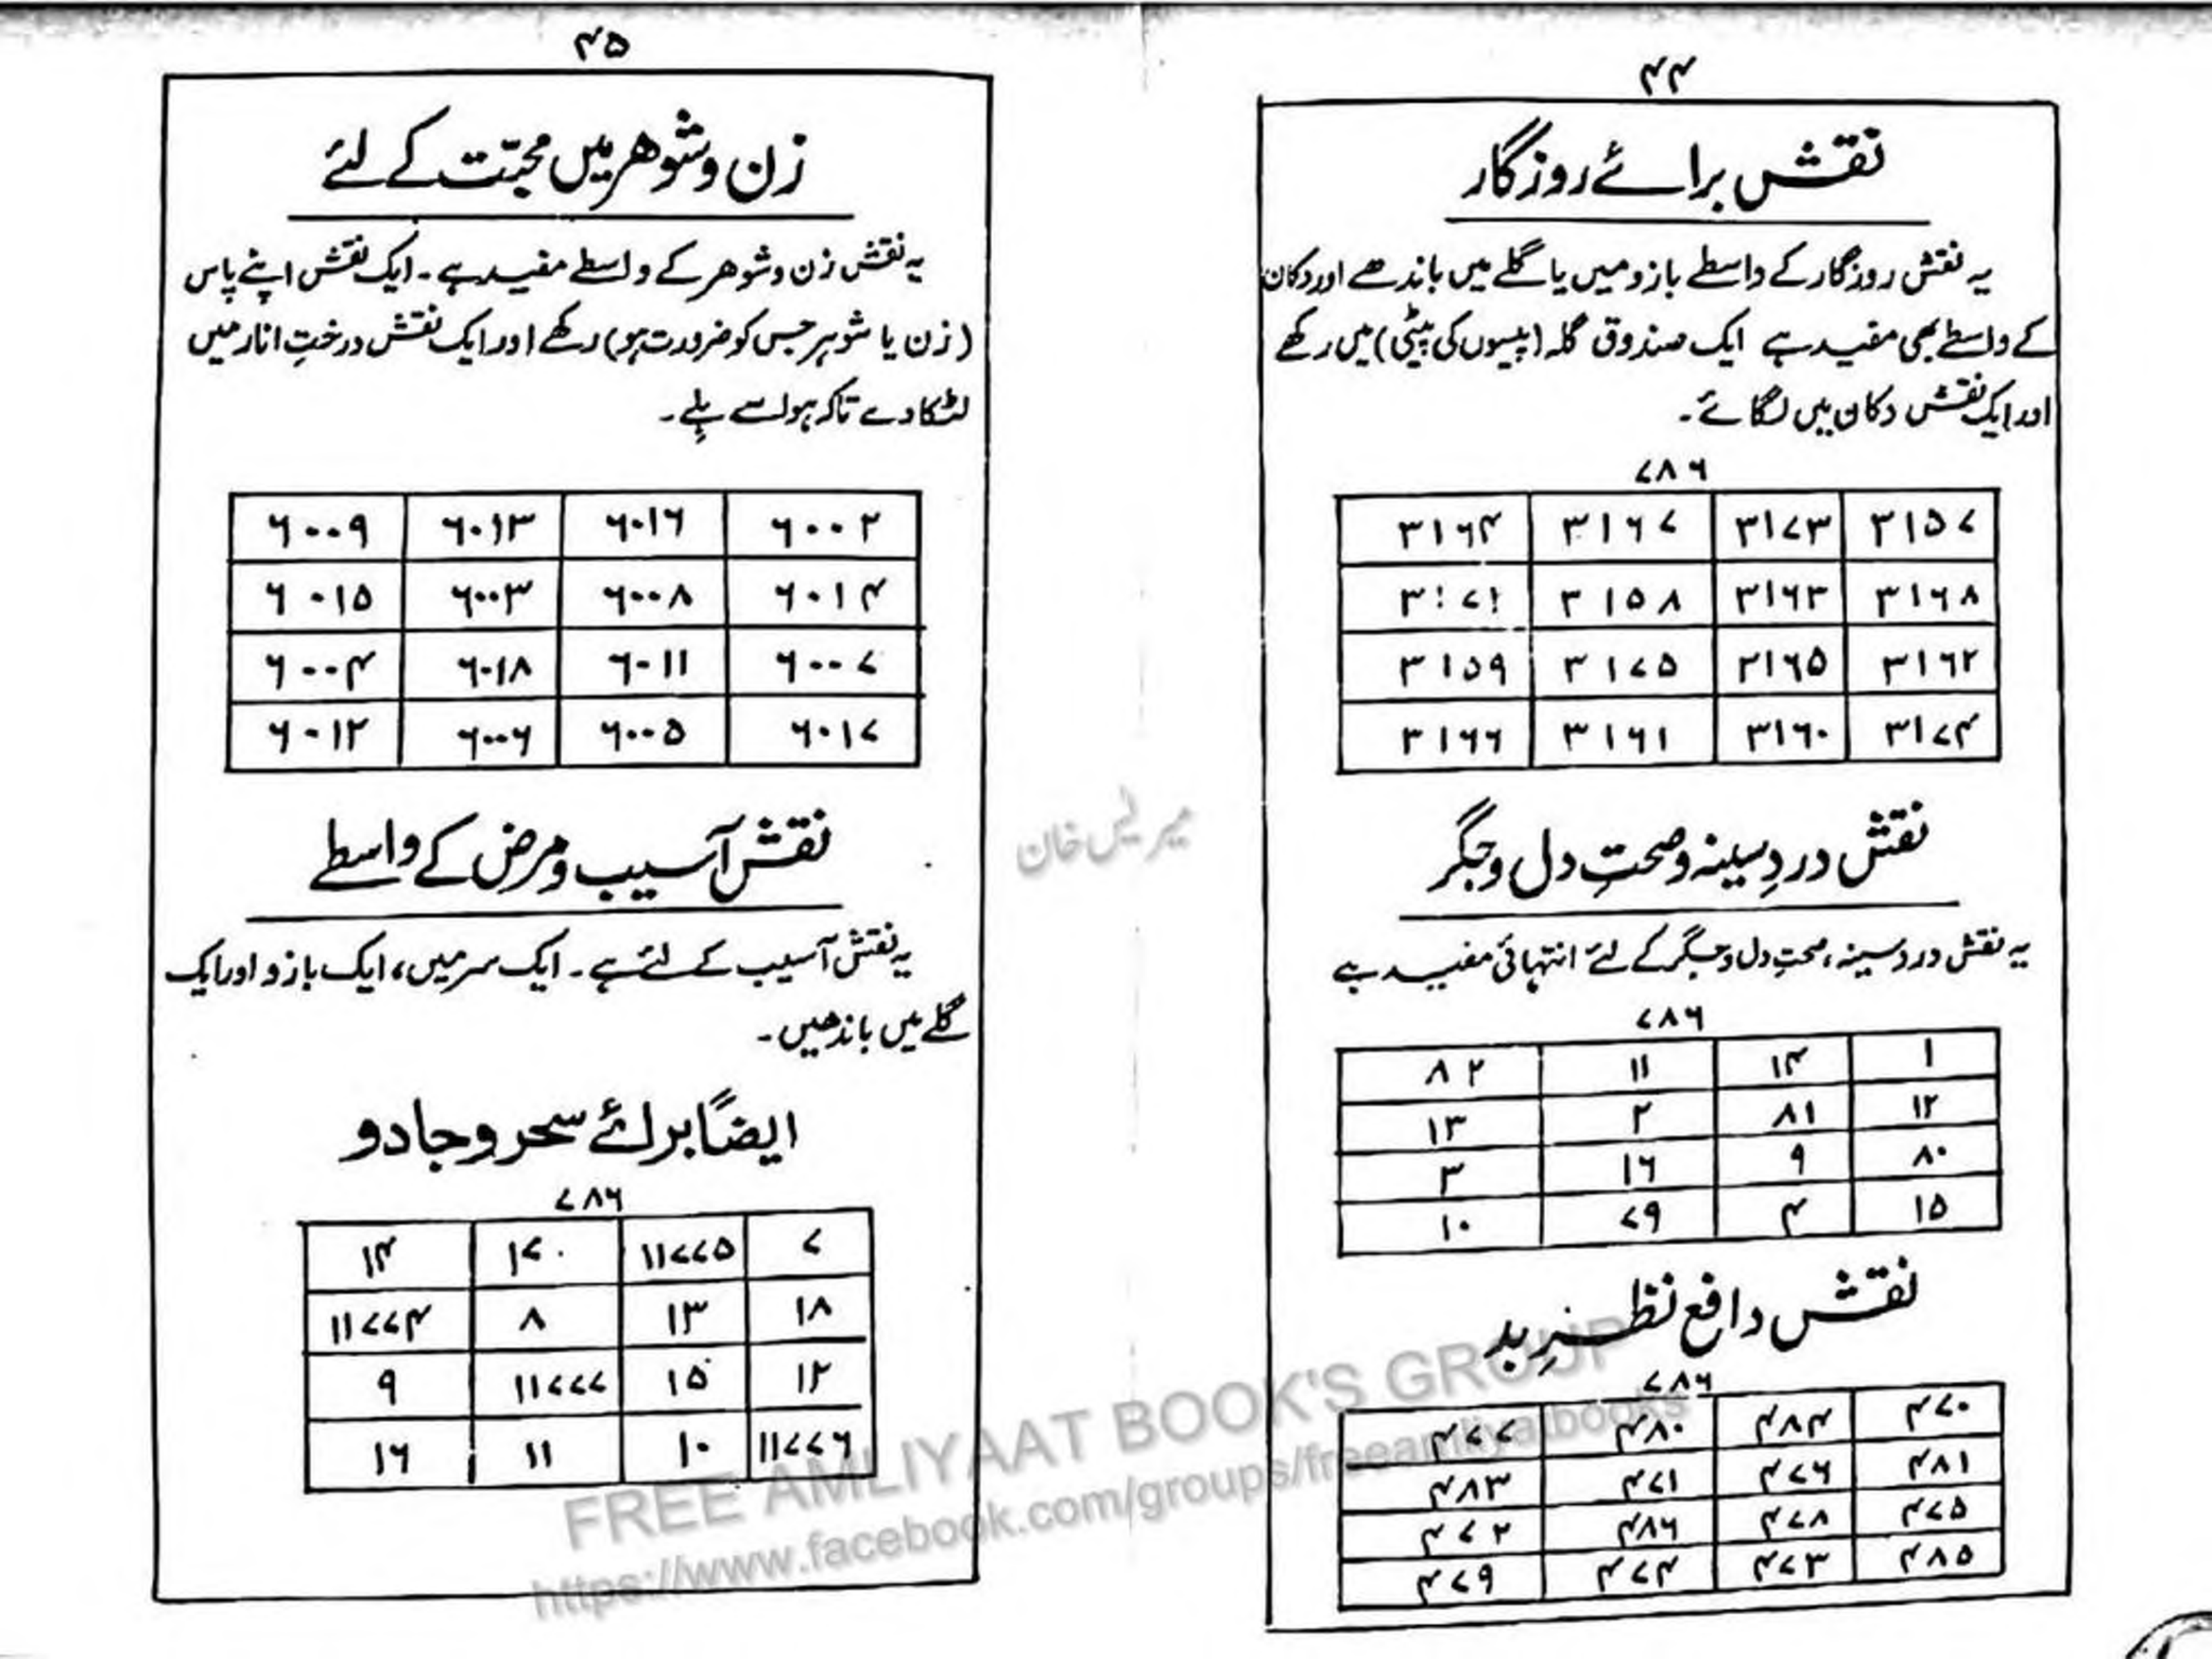 ۴۴
نقش برائے روزگار
یہ نقش روزگار کے واسطے بازو میں یا گلے میں باندھے اور دکان
کے واسطے بھی مفید ہے ایک صندوق گلہ (پیسوں کی پیٹی) میں رکھے
اور ایک نقش دکان میں لگائے۔
۷۸۶
۳۱۶۴ ۳۱۶۷ ۳۱۷۳ ۳۱۵۷
۳۱۷۱ ۳۱۵۸ ۳۱۶۳ ۳۱۶۸
۳۱۵۹ ۳۱۷۵ ۳۱۶۵ ۳۱۶۲
۳۱۶۶ ۳۱۶۱ ۳۱۶۰ ۳۱۷۴
نقش دردِ سینہ و صحتِ دل و جگر
یہ نقش درد سینہ، صحتِ دل و جگر کے لئے انتہائی مفید ہے
۷۸۶
۸۲ ۱۱ ۱۴ ۱
۱۳ ۲ ۸۱ ۱۲
۳ ۱۶ ۹ ۸۰
۱۰ ۷۹ ۴ ۱۵
نقش دافع نظرِ بد
۷۸۶
۴۷۷ ۴۸۰ ۴۸۴ ۴۷۰
۴۸۳ ۴۷۱ ۴۷۶ ۴۸۱
۴۷۲ ۴۸۶ ۴۷۸ ۴۷۵
۴۷۹ ۴۷۴ ۴۷۳ ۴۸۵
۴۵
زن و شوہر میں محبّت کے لئے
یہ نقش زن و شوہر کے واسطے مفید ہے۔ ایک نقش اپنے پاس
(زن یا شوہر جس کو ضرورت ہو) رکھے اور ایک نقش درختِ انار میں
لٹکا دے تاکہ ہوا سے ہلے۔
۶۰۰۹ ۶۰۱۳ ۶۰۱۶ ۶۰۰۲
۶۰۱۵ ۶۰۰۳ ۶۰۰۸ ۶۰۱۴
۶۰۰۴ ۶۰۱۸ ۶۰۱۱ ۶۰۰۷
۶۰۱۲ ۶۰۰۶ ۶۰۰۵ ۶۰۱۷
نقش آسیب و مرض کے واسطے
یہ نقش آسیب کے لئے ہے۔ ایک سر میں، ایک بازو اور ایک
گلے میں باندھیں۔
ایضاً برائے سحر و جادو
۷۸۶
۱۴ ۱۷۰ ۱۱۷۷۵ ۷
۱۱۷۷۴ ۸ ۱۳ ۱۸
۹ ۱۱۷۷۷ ۱۵ ۱۲
۱۶ ۱۱ ۱۰ ۱۱۷۷۶
FREE AMLIYAAT BOOK'S GROUP
https://www.facebook.com/groups/freeamliyatbooks